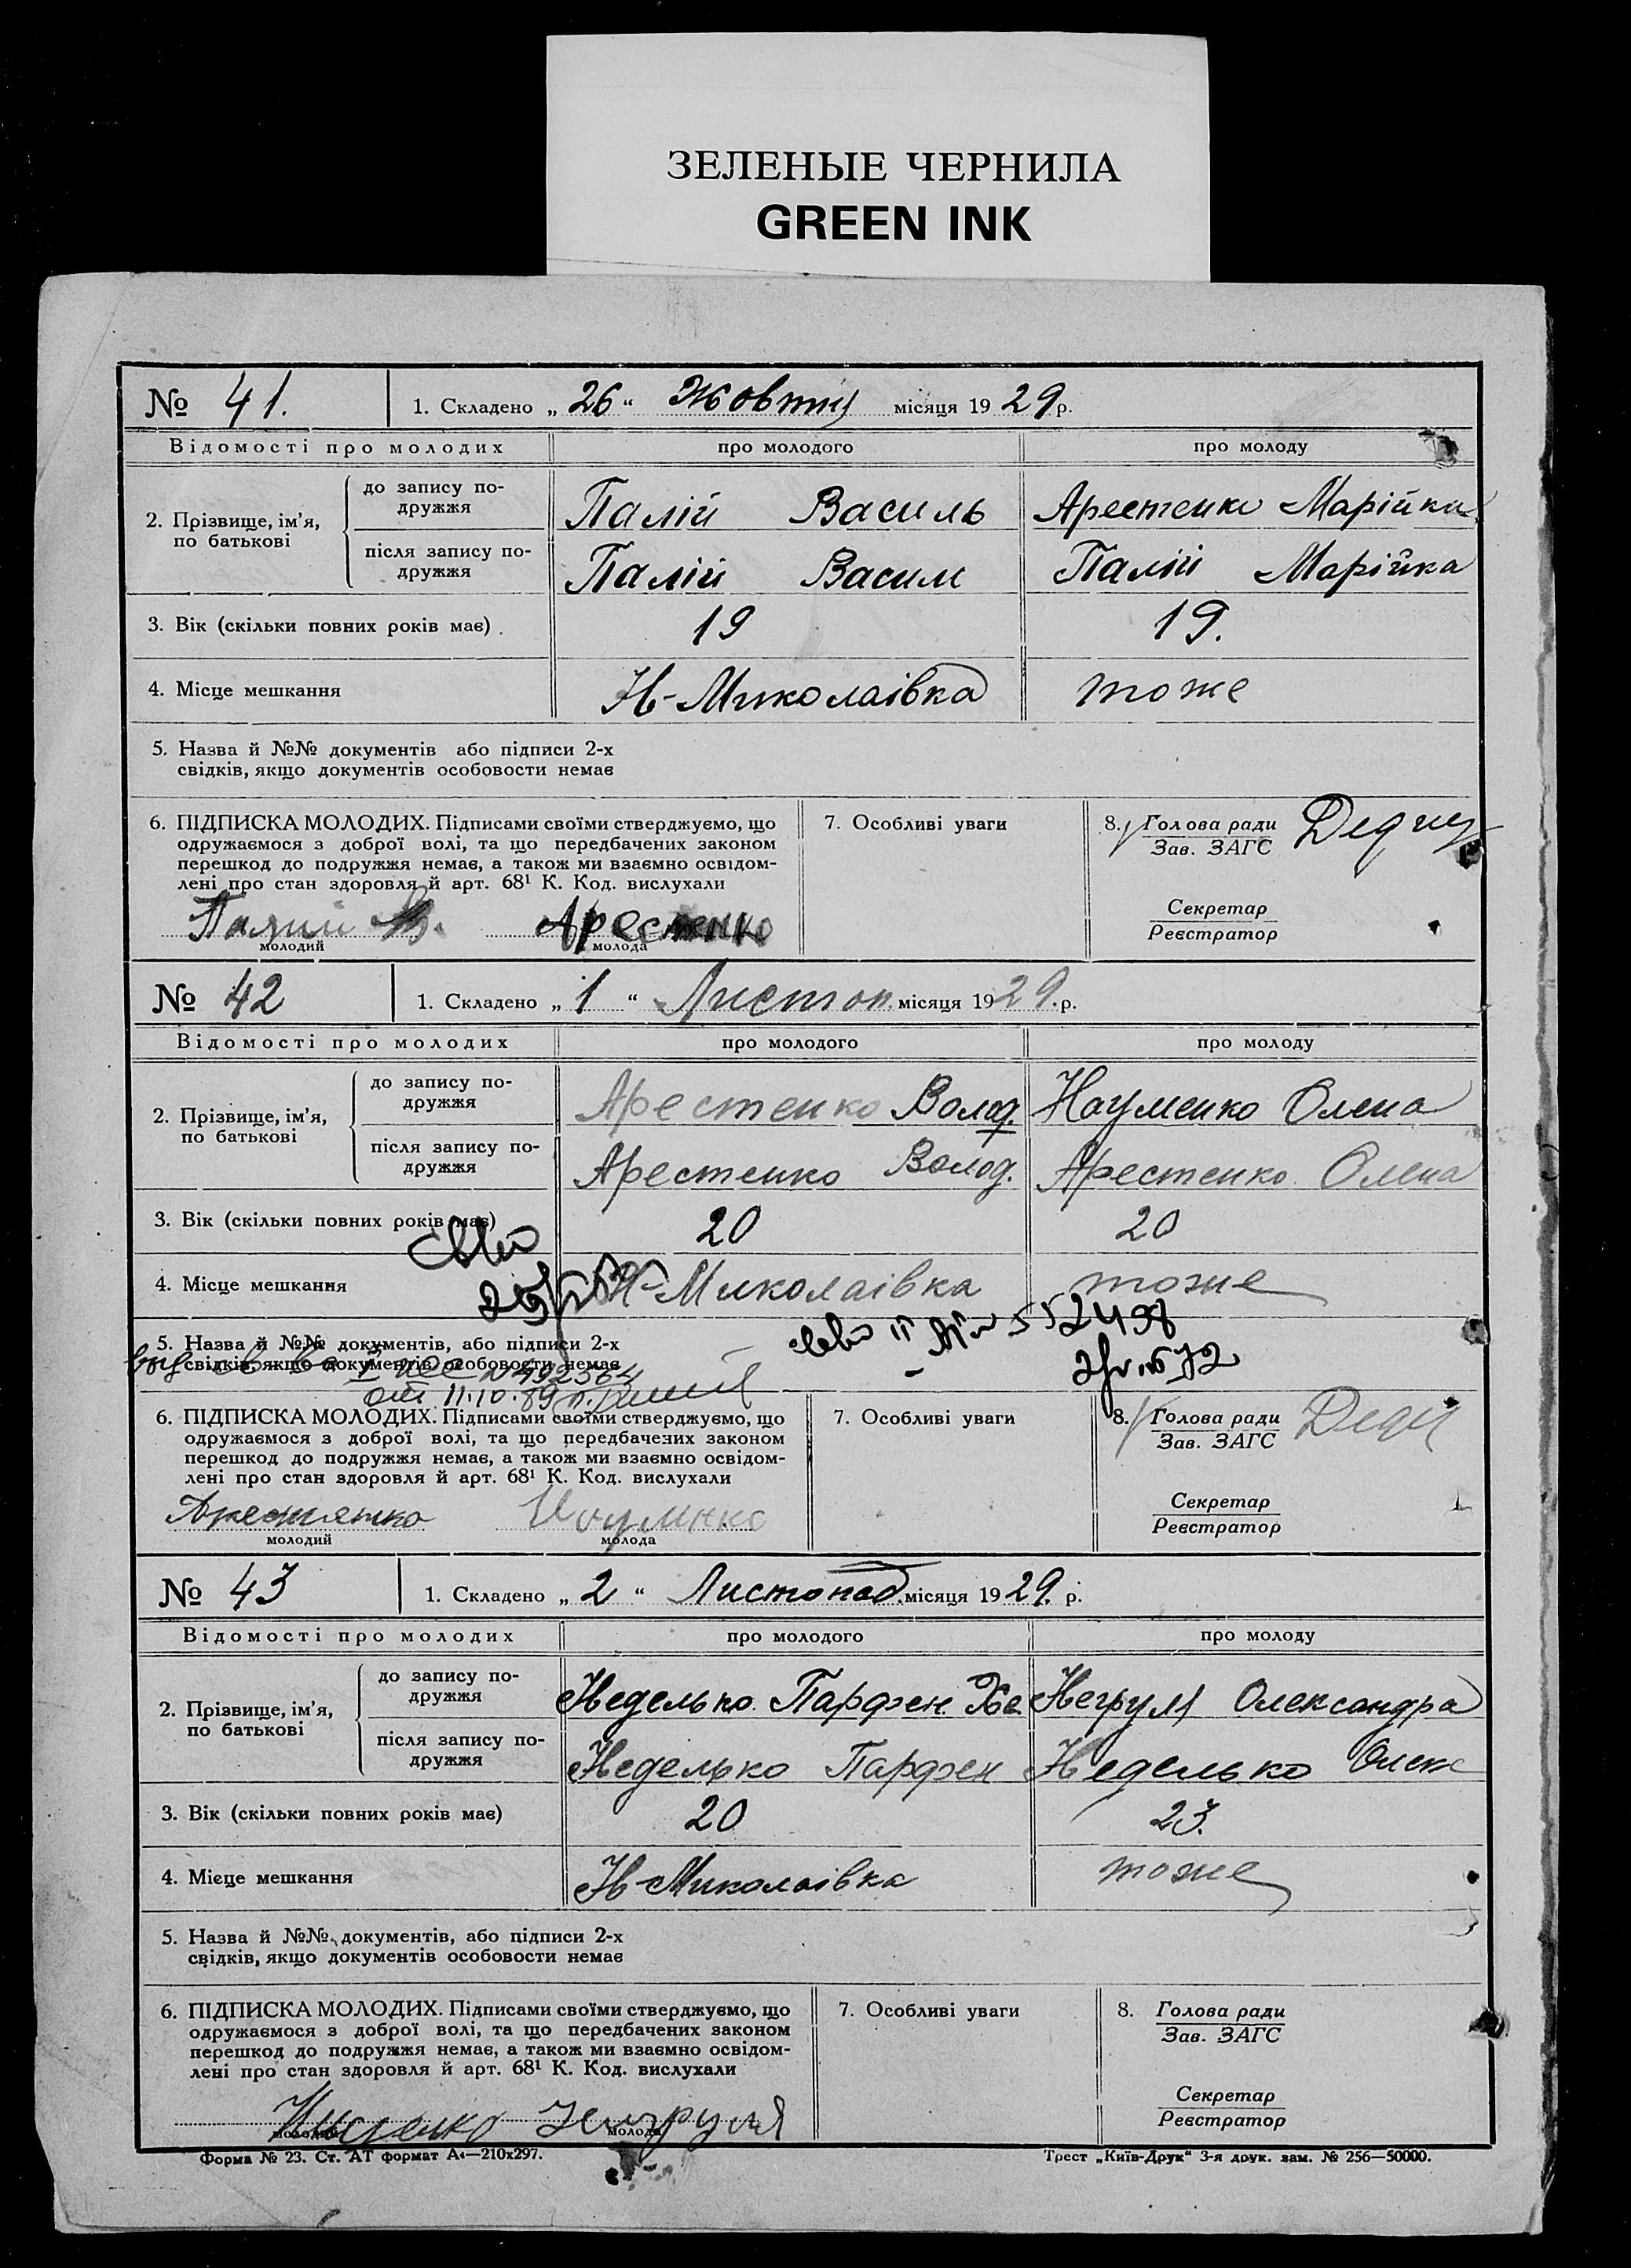 ЗЕЛЕНЫЕ ЧЕРНИЛА
GREEN INK
№ 41. 1. Складено „ 26 “ Жовтня місяця 19 29 р.
Відомості про молодих про молодого про молоду
2. Прізвище, ім'я, по батькові
до запису по-дружжя Палій Василь Арестенко Марійка
після запису по-дружжя Палій Васил Палій Марійка
3. Вік (скільки повних років має) 19 19.
4. Місце мешкання Н-Миколаівка тоже
5. Назва й №№ документів або підписи 2-х
свідків, якщо документів особовости немає
6. ПІДПИСКА МОЛОДИХ. Підписами своїми стверджуємо, що
одружаємося з доброї волі, та що передбачених законом
перешкод до подружжя немає, а також ми взаємно освідом-
лені про стан здоровля й арт. 68¹ К. Код. вислухали
7. Особливі уваги
8. Голова ради
Зав. ЗАГС
Секретар
Реєстратор
Палий В. Арестенко
молодий молода
№ 42 1. Складено „ 1 “ Листоп. місяця 19 29. р.
Відомості про молодих про молодого про молоду
2. Прізвище, ім'я, по батькові
до запису по-дружжя Арестенко Волод. Науменко Олена
після запису по-дружжя Арестенко Волод. Арестенко Олена
3. Вік (скільки повних років має) 20 20
4. Місце мешкання Н-Миколаівка тоже
5. Назва й №№ документів, або підписи 2-х
свідків, якщо документів особовости немає
552498
№ 492564
от 11.10.89 г.
6. ПІДПИСКА МОЛОДИХ. Підписами своїми стверджуємо, що
одружаємося з доброї волі, та що передбачених законом
перешкод до подружжя немає, а також ми взаємно освідом-
лені про стан здоровля й арт. 68¹ К. Код. вислухали
7. Особливі уваги
8. Голова ради
Зав. ЗАГС
Секретар
Реєстратор
молодий молода
№ 43 1. Складено „ 2 “ Листопад. місяця 19 29. р.
Відомості про молодих про молодого про молоду
2. Прізвище, ім'я, по батькові
до запису по-дружжя Неделько Парфен Негруля Олександра
після запису по-дружжя Неделько Парфен Неделько Олекс
3. Вік (скільки повних років має) 20 23.
4. Місце мешкання Н-Миколаівка тоже
5. Назва й №№ документів, або підписи 2-х
свідків, якщо документів особовости немає
6. ПІДПИСКА МОЛОДИХ. Підписами своїми стверджуємо, що
одружаємося з доброї волі, та що передбачених законом
перешкод до подружжя немає, а також ми взаємно освідом-
лені про стан здоровля й арт. 68¹ К. Код. вислухали
7. Особливі уваги
8. Голова ради
Зав. ЗАГС
Секретар
Реєстратор
молодий молода
Форма № 23. Ст. АТ формат А4—210х297. Трест „Київ-Друк“ 3-я друк. зам. № 256—50000.